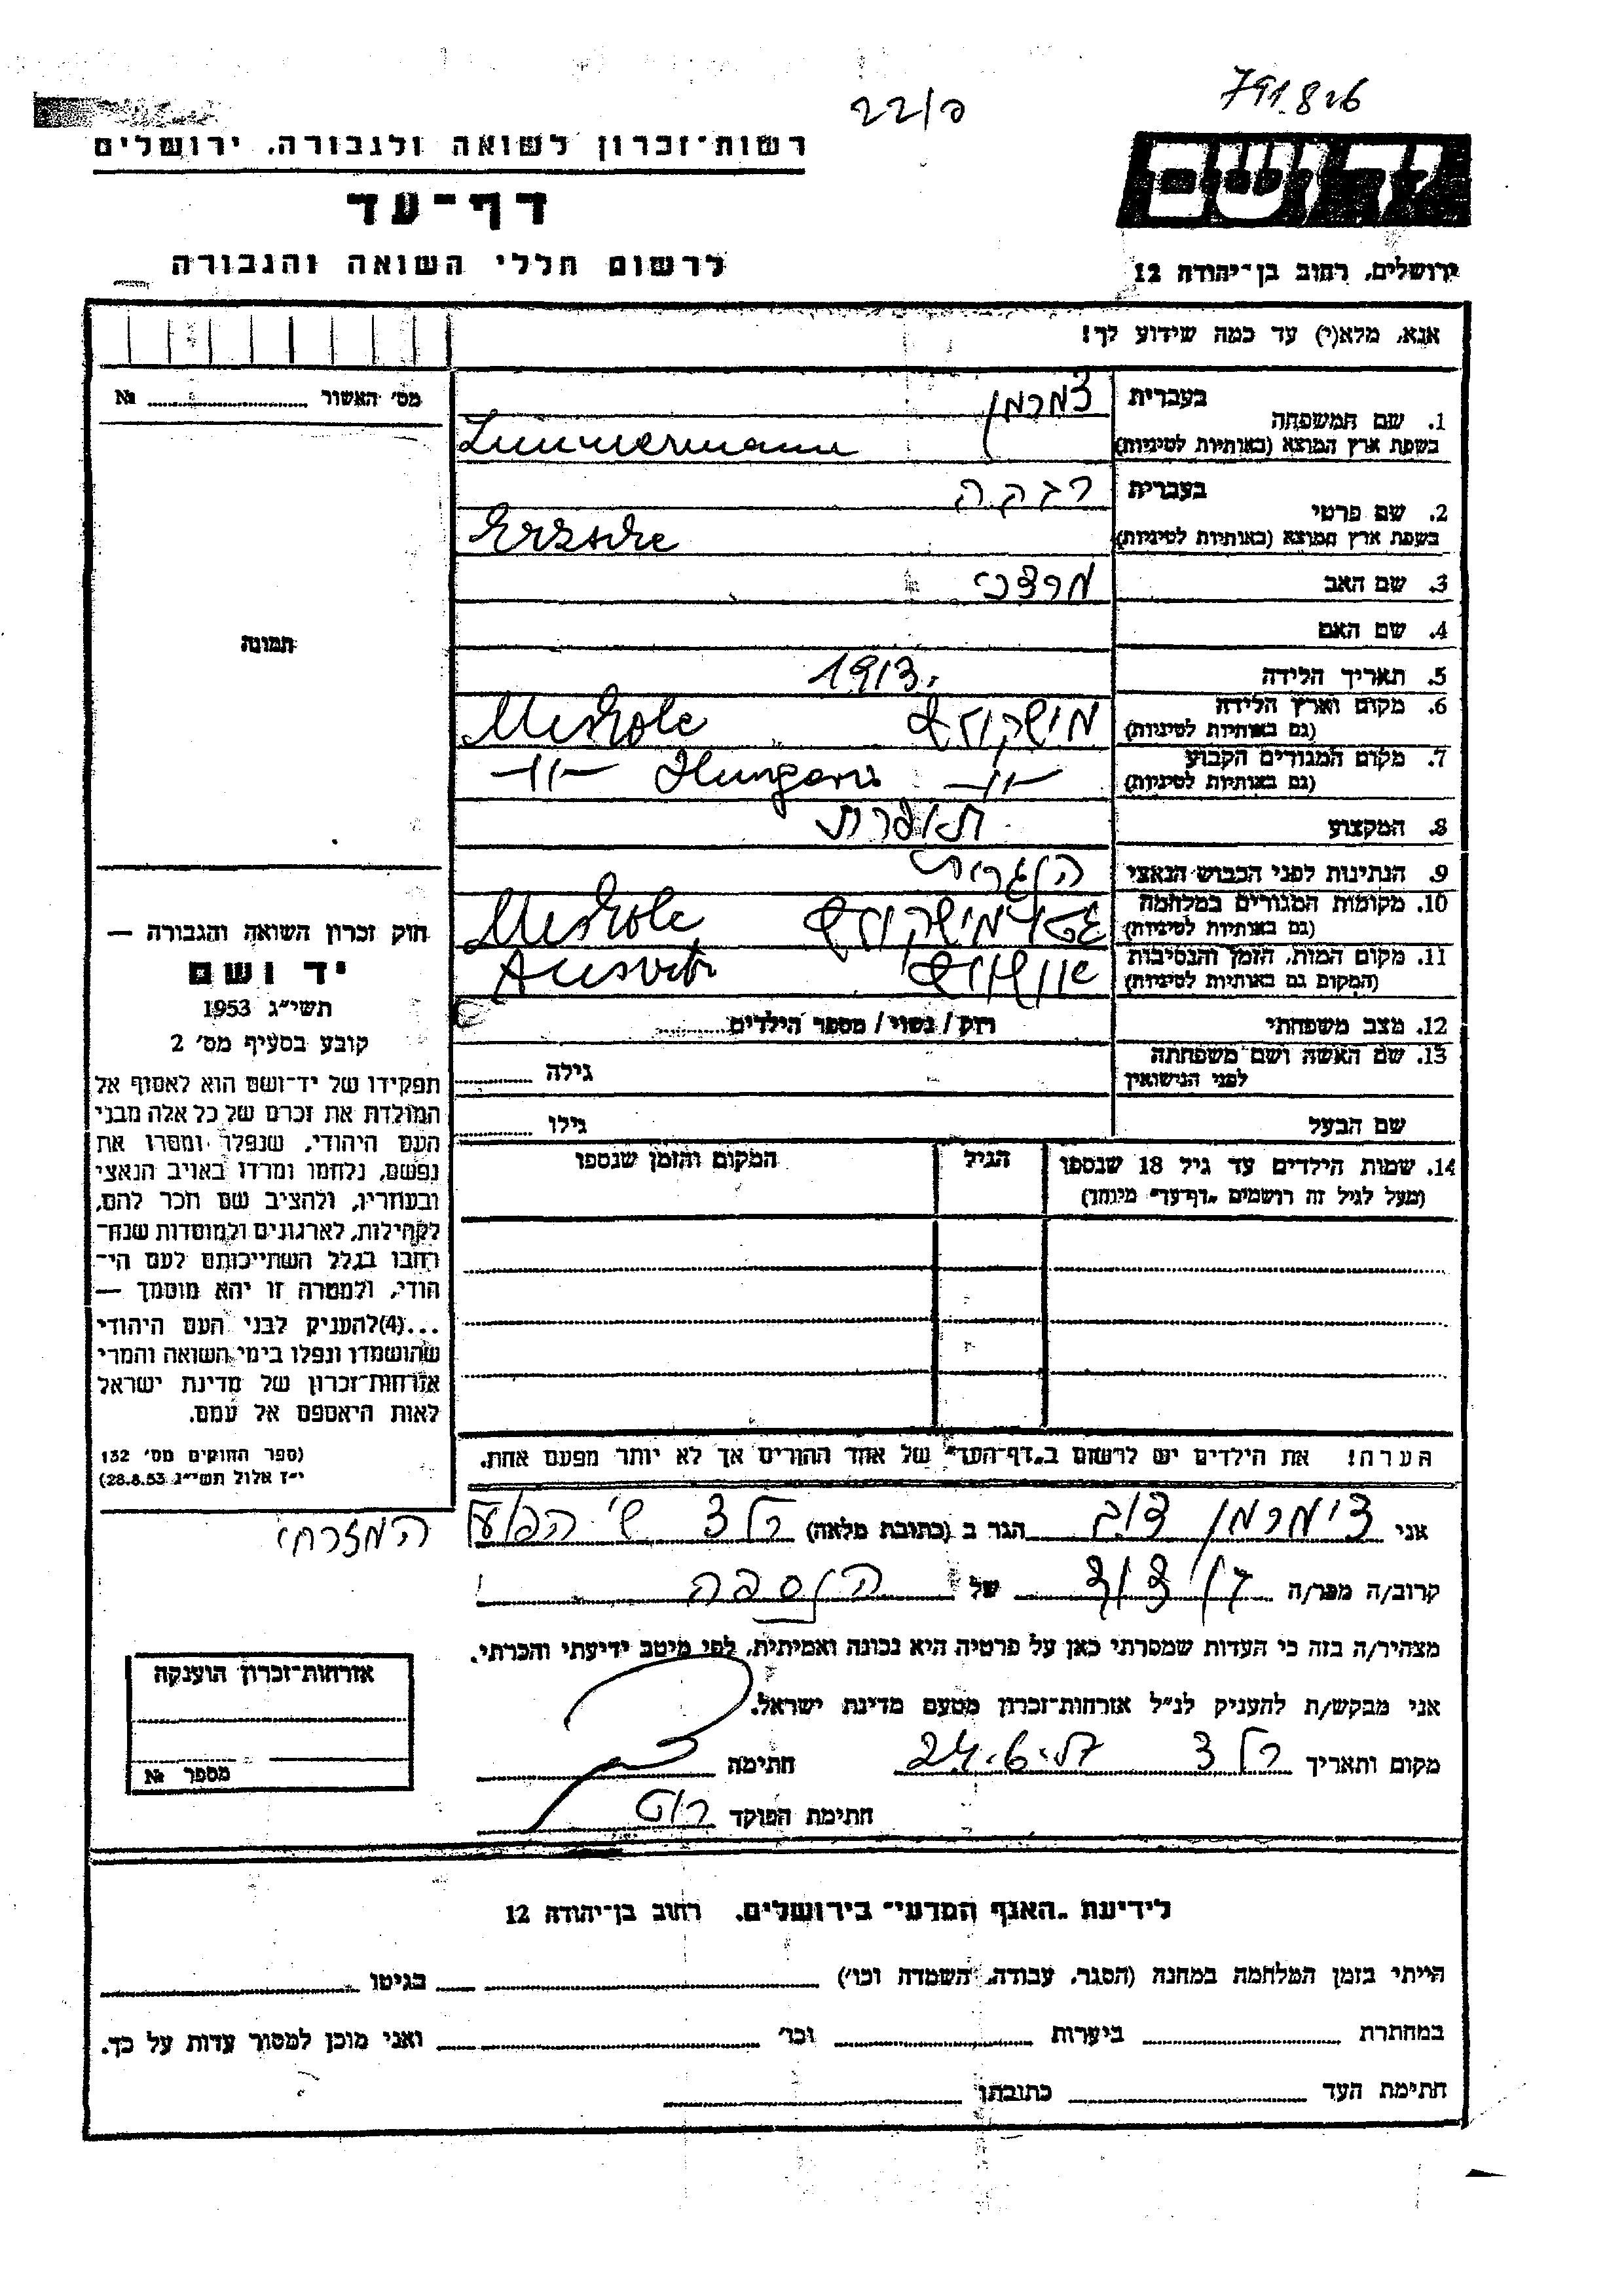 791.826
22/פ
יד ושם
ירושלים, רחוב בן־יהודה 12
רשות־זכרון לשואה ולגבורה, ירושלים
דף־עד
לרשום חללי השואה והגבורה
אנא, מלא(י) עד כמה שידוע לך!
1. שם המשפחה
בעברית צמרמן
בשפת ארץ המוצא (באותיות לטיניות) Zimmermann
2. שם פרטי
בעברית רבקה
בשפת ארץ המוצא (באותיות לטיניות) Erzseke
3. שם האב מרדכי
4. שם האם
5. תאריך הלידה 1913.
6. מקום וארץ הלידה מישקולץ Miskolc
(גם באותיות לטיניות)
7. מקום המגורים הקבוע -"- Hungari -"-
(גם באותיות לטיניות)
8. המקצוע תופרת
9. הנתינות לפני הכבוש הנאצי הונגרית
10. מקומות המגורים במלחמה גטו מישקולץ Miskolc
(גם באותיות לטיניות)
11. מקום המות, הזמן והנסיבות אושויץ Ausvitz
(המקום גם באותיות לטיניות)
12. מצב משפחתי רוק / נשוי / מספר הילדים
13. שם האשה ושם משפחתה גילה
לפני הנישואין
שם הבעל גילו
14. שמות הילדים עד גיל 18 שנספו הגיל המקום והזמן שנספו
(מעל לגיל זה רושמים „דף־עד” מיוחד)
הערה! את הילדים יש לרשום ב„דף־העד” של אחד ההורים אך לא יותר מפעם אחת.
מס' האשור №
תמונה
חוק זכרון השואה והגבורה —
יד ושם
תשי״ג 1953
קובע בסעיף מס' 2
תפקידו של יד־ושם הוא לאסוף אל
המולדת את זכרם של כל אלה מבני
העם היהודי, שנפלו ומסרו את
נפשם, נלחמו ומרדו באויב הנאצי
ובעוזריו, ולהציב שם וזכר להם,
לקהילות, לארגונים ולמוסדות שנח־
רבו בגלל השתייכותם לעם הי־
הודי, ולמטרה זו יהא מוסמך —
...(4)להעניק לבני העם היהודי
שהושמדו ונפלו בימי השואה והמרי
אזרחות־זכרון של מדינת ישראל
לאות היאספם אל עמם.
(ספר החוקים מס' 132
י״ז אלול תשי״ג 28.8.53)
אני צימרמן דוב הגר ב (כתובת מלאה) רל צ ש' הפועל המזרחי
קרוב/ה מכר/ה בן דוד של הנספה
מצהיר/ה בזה כי העדות שמסרתי כאן על פרטיה היא נכונה ואמיתית, לפי מיטב ידיעתי והכרתי.
אני מבקש/ת להעניק לנ״ל אזרחות־זכרון מטעם מדינת ישראל.
מקום ותאריך רל צ 24.6.57 חתימה
חתימת הפוקד
אזרחות־זכרון הוענקה
מספר №
לידיעת „האגף המדעי” בירושלים, רחוב בן־יהודה 12
הייתי בזמן המלחמה במחנה (הסגר, עבודה, השמדה וכו') בגיטו
במחתרת ביערות וכו' ואני מוכן למסור עדות על כך.
חתימת העד כתובתו